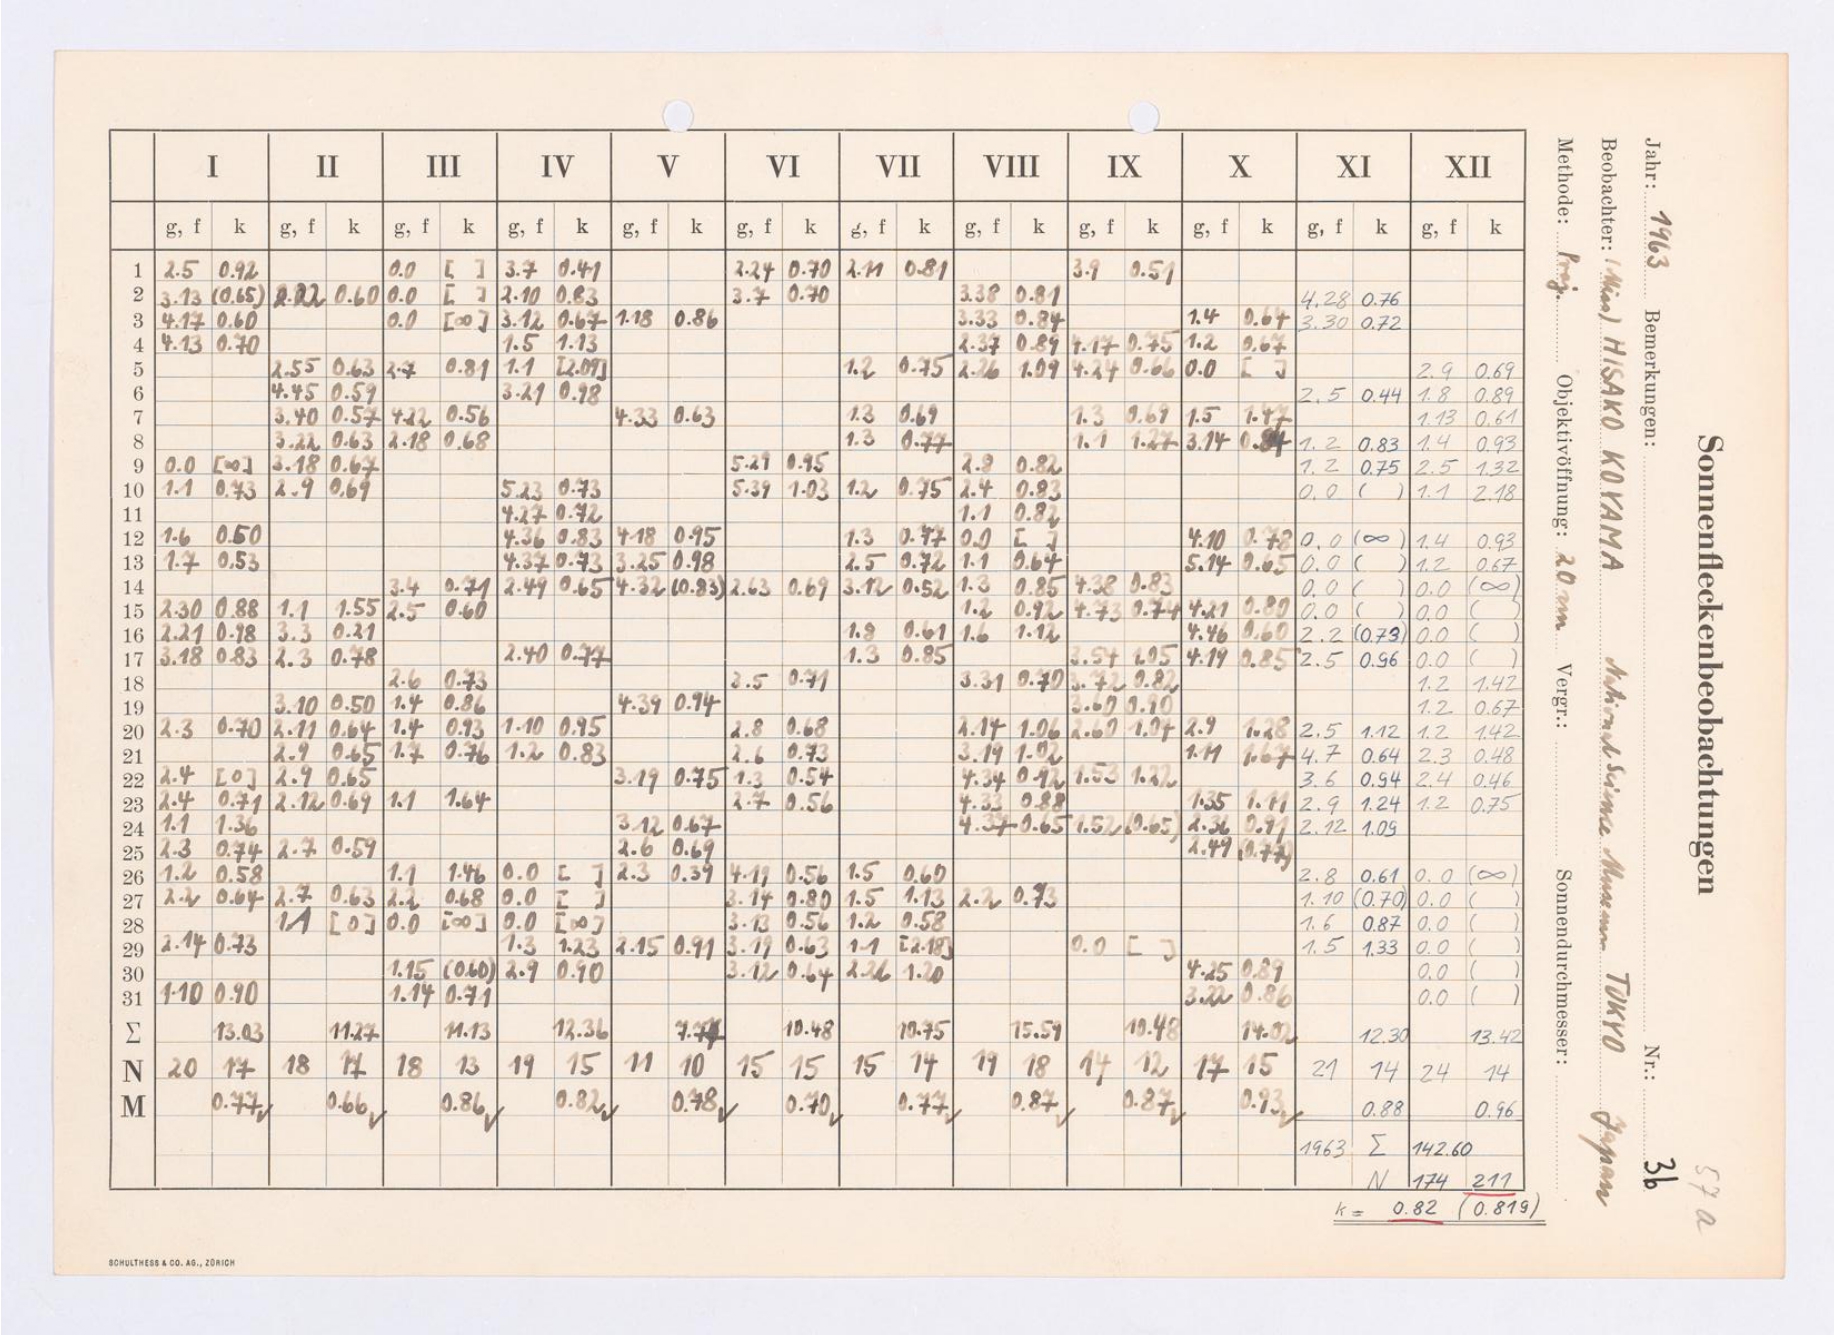 Sonnenfleckenbeobachtungen
57 a
Jahr: 1963 Bemerkungen: Nr.: 36
Beobachter: (Miss) HISAKO KOYAMA National Science Museum TOKYO Japan
Methode: Proj. Objektivöffnung: 20 cm Vergr.: Sonnendurchmesser:
I II III IV V VI VII VIII IX X XI XII
g, f k g, f k g, f k g, f k g, f k g, f k g, f k g, f k g, f k g, f k g, f k g, f k
1 2.5 0.92 0.0 [ ] 3.7 0.41 2.24 0.70 2.11 0.81 3.9 0.51
2 3.13 (0.65) 2.22 0.60 0.0 [ ] 2.10 0.83 3.7 0.70 3.38 0.81 4.28 0.76
3 4.17 0.60 0.0 [∞] 3.12 0.67 1.18 0.86 3.33 0.84 1.4 0.64 3.30 0.72
4 4.13 0.70 1.5 1.13 2.37 0.89 4.17 0.75 1.2 0.67
5 2.55 0.63 2.7 0.81 1.1 [2.09] 1.2 0.75 2.26 1.09 4.24 0.66 0.0 [ ] 2.9 0.69
6 4.45 0.59 3.21 0.98 2.5 0.44 1.8 0.89
7 3.40 0.57 4.22 0.56 4.33 0.63 1.3 0.69 1.3 0.69 1.5 1.47 1.13 0.61
8 3.22 0.63 2.18 0.68 1.3 0.77 1.1 1.27 3.14 0.84 1.2 0.83 1.4 0.93
9 0.0 [∞] 3.18 0.67 5.29 0.95 2.8 0.82 1.2 0.75 2.5 1.32
10 1.1 0.73 2.9 0.69 5.23 0.73 5.39 1.03 1.2 0.75 2.4 0.83 0.0 ( ) 1.1 2.18
11 4.27 0.72 1.1 0.82
12 1.6 0.50 4.36 0.83 4.18 0.95 1.3 0.77 0.0 [ ] 4.10 0.78 0.0 (∞) 1.4 0.93
13 1.7 0.53 4.37 0.73 3.25 0.98 2.5 0.72 1.1 0.64 5.14 0.65 0.0 ( ) 1.2 0.67
14 3.4 0.71 2.49 0.65 4.32 (0.83) 2.63 0.69 3.12 0.52 1.3 0.85 4.38 0.83 0.0 ( ) 0.0 (∞)
15 2.30 0.88 1.1 1.55 2.5 0.60 1.2 0.92 4.73 0.74 4.21 0.80 0.0 ( ) 0.0 ( )
16 2.21 0.98 3.3 0.21 1.8 0.61 1.6 1.12 4.46 0.60 2.2 (0.73) 0.0 ( )
17 3.18 0.83 2.3 0.78 2.40 0.77 1.3 0.85 3.54 1.05 4.19 0.85 2.5 0.96 0.0 ( )
18 2.6 0.73 3.5 0.71 3.31 0.70 3.72 0.82 1.2 1.42
19 3.10 0.50 1.4 0.86 4.39 0.94 3.60 0.90 1.2 0.67
20 2.3 0.70 2.11 0.64 1.4 0.93 1.10 0.95 2.8 0.68 2.14 1.06 2.60 1.04 2.9 1.28 2.5 1.12 1.2 1.42
21 2.9 0.65 1.7 0.76 1.2 0.83 2.6 0.73 3.19 1.02 1.11 1.67 4.7 0.64 2.3 0.48
22 2.4 [0] 2.9 0.65 3.19 0.75 1.3 0.54 4.34 0.92 1.53 1.22 3.6 0.94 2.4 0.46
23 2.4 0.71 2.12 0.69 1.1 1.64 2.7 0.56 4.33 0.88 1.35 1.11 2.9 1.24 1.2 0.75
24 1.1 1.36 3.12 0.67 4.37 0.65 1.52 (0.65) 2.36 0.91 2.12 1.09
25 2.3 0.74 2.7 0.59 2.6 0.69 2.49 (0.77)
26 1.2 0.58 1.1 1.46 0.0 [ ] 2.3 0.39 4.19 0.56 1.5 0.60 2.8 0.61 0.0 (∞)
27 2.2 0.64 2.7 0.63 2.2 0.68 0.0 [ ] 3.14 0.80 1.5 1.13 2.2 0.73 1.10 (0.70) 0.0 ( )
28 1.1 [0] 0.0 [∞] 0.0 [∞] 3.13 0.56 1.2 0.58 1.6 0.87 0.0 ( )
29 2.14 0.73 1.3 1.23 2.15 0.91 3.19 0.63 1.1 [2.18] 0.0 [ ] 1.5 1.33 0.0 ( )
30 1.15 (0.60) 2.9 0.90 3.12 0.64 2.26 1.20 4.25 0.89 0.0 ( )
31 1.10 0.90 1.14 0.71 3.22 0.86 0.0 ( )
Σ 13.03 11.27 11.13 12.36 10.48 10.75 15.59 10.48 14.02 12.30 13.42
N 20 17 18 17 18 13 19 15 11 10 15 15 15 14 19 18 14 12 17 15 21 14 24 14
M 0.77 0.66 0.86 0.82 0.78 0.70 0.77 0.87 0.87 0.93 0.88 0.96
1963 Σ 142.60
N 174 211
k = 0.82 (0.819)
SCHULTHESS & CO. AG., ZÜRICH